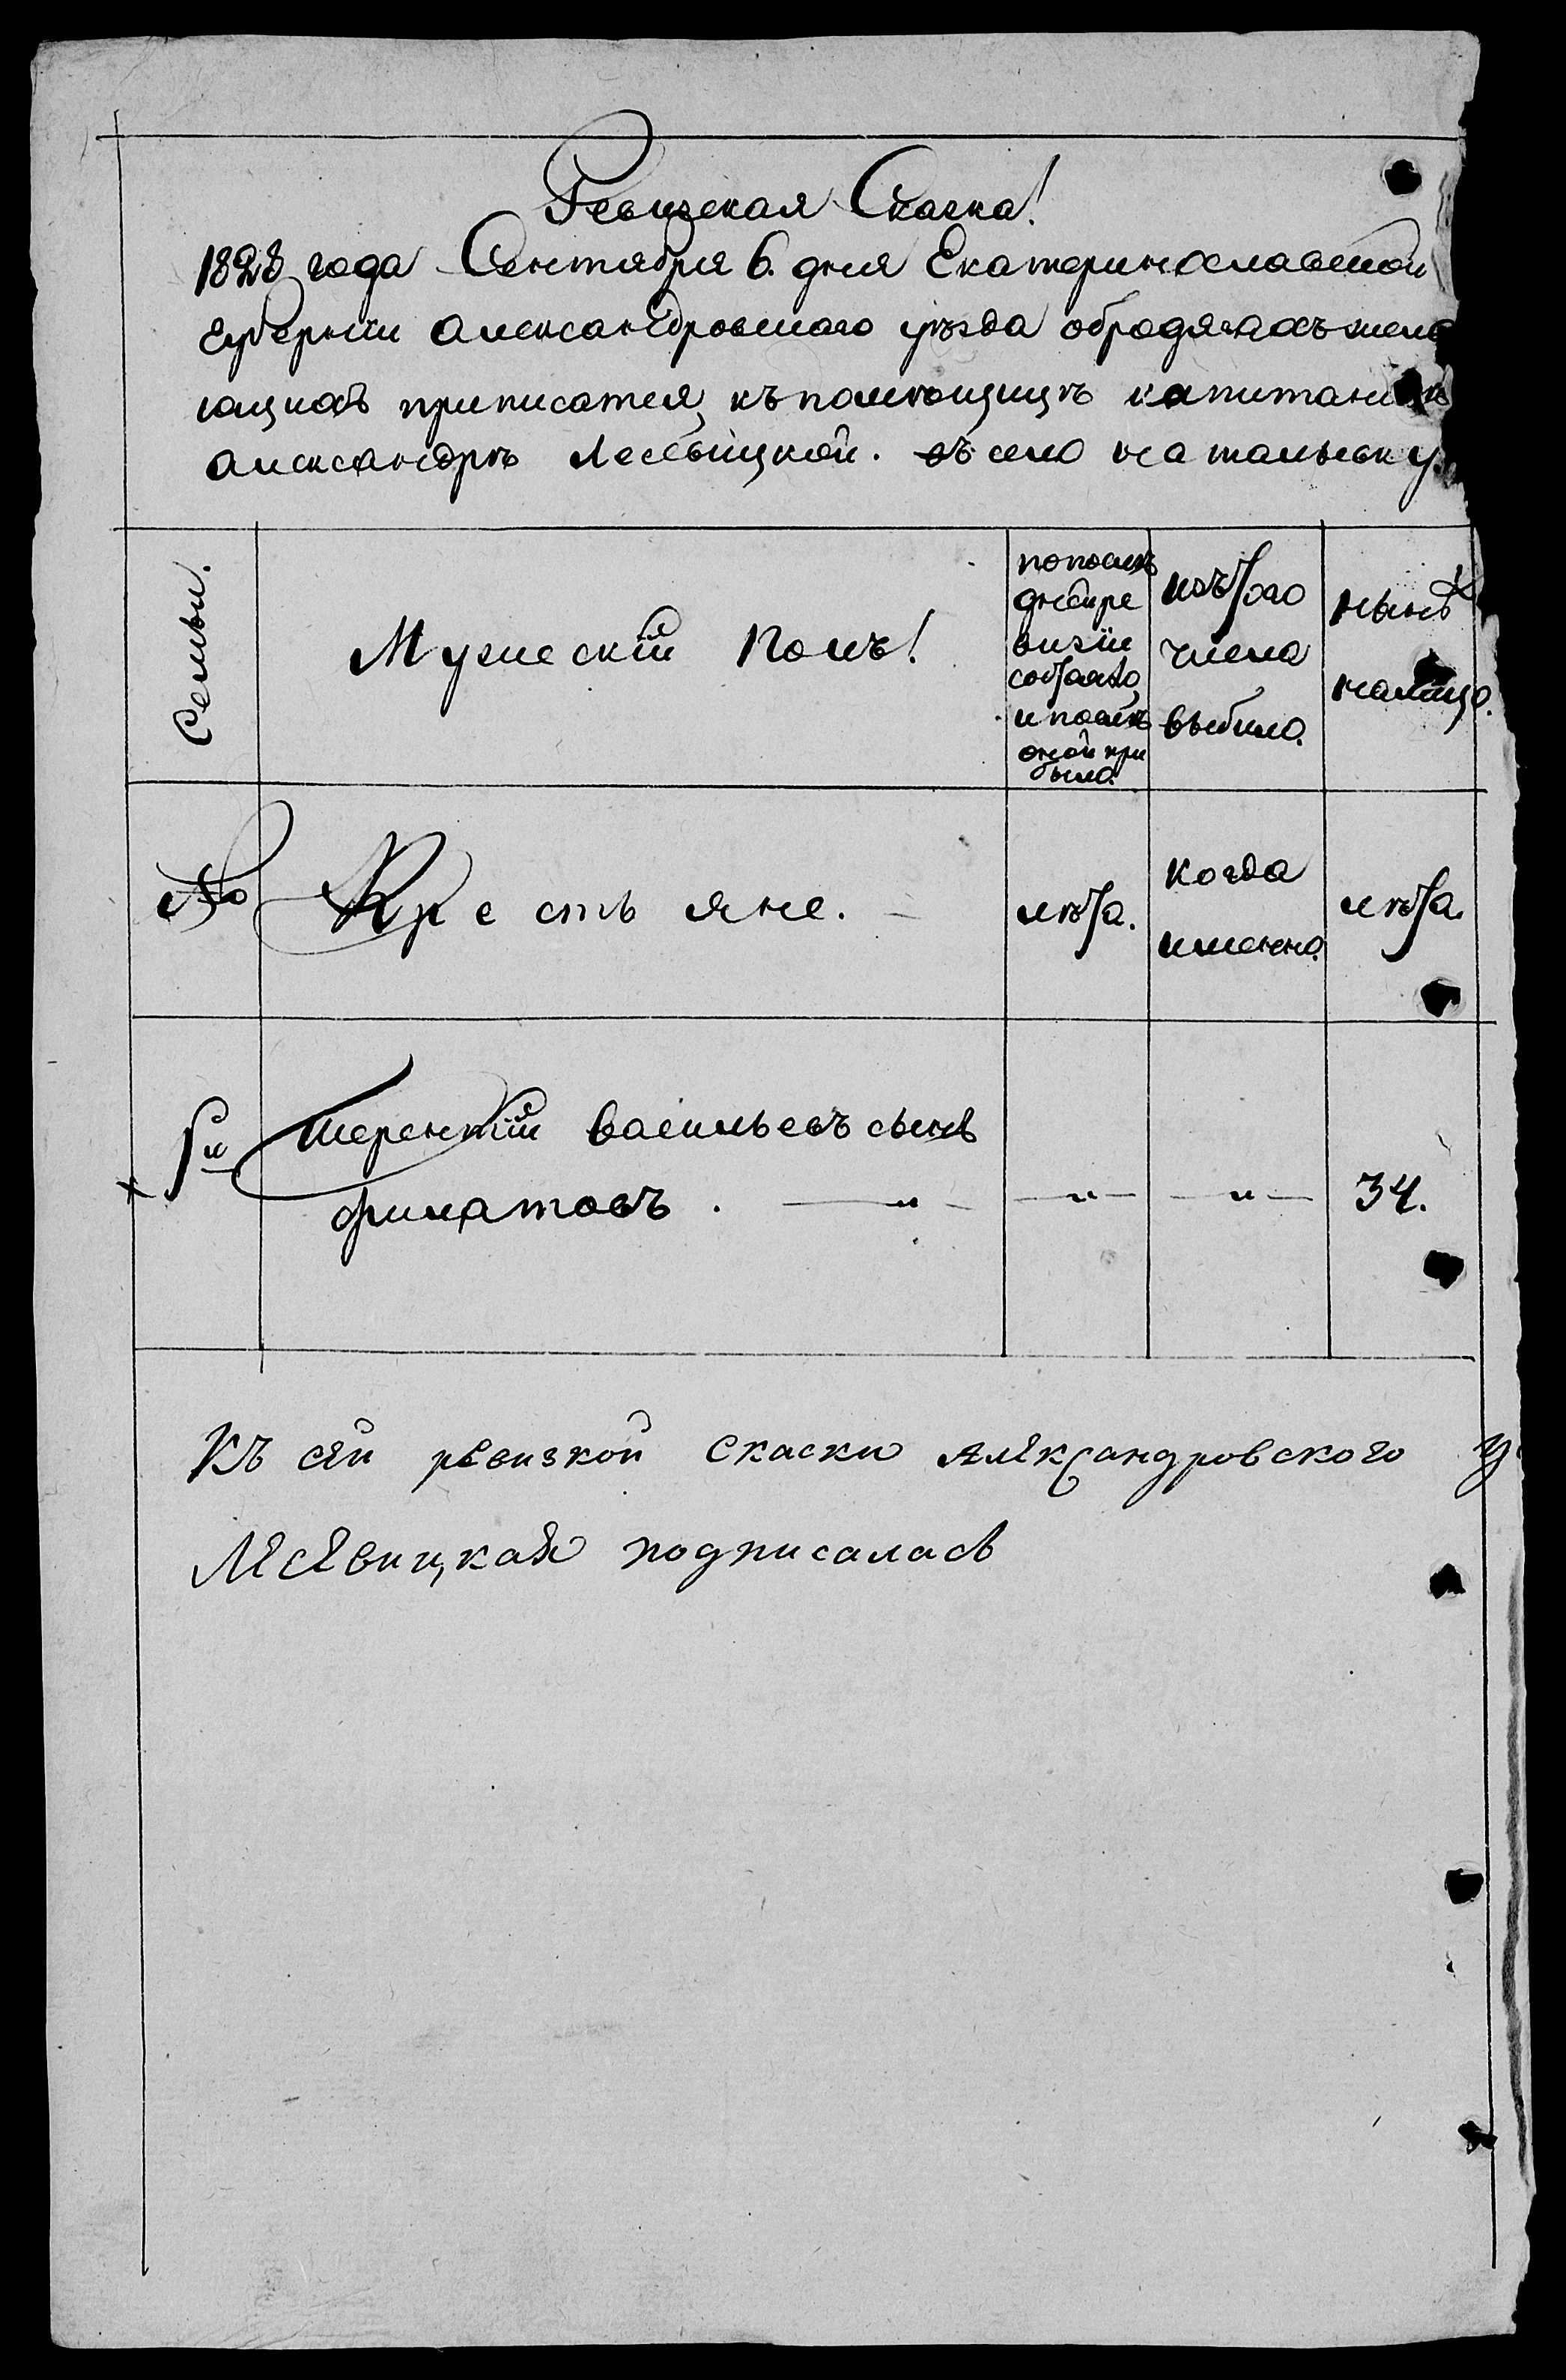 Ревизская Сказка!
1828 года Сентября 6. дня Екатеринославской
Губернии Александровскаго уѣзда обродягахъ жела
ющихъ приписатся, къ помѣщицѣ капитаншѣ
Александрѣ Лесевицкой. въ село Натальевку
Семьи.
Мужескій Полъ!
по послѣ
дней ре
визіи
состояло,
и послѣ
оной при
было.
изъ того
числа
выбыло.
нынѣ
налицо.
№
Крестьяне.
лѣта.
когда
именно.
лѣта.
1й
Терентій Васильевъ сынъ
Филатовъ . — " —
— " —
— " —
34.
Къ сей ревизкой скаски Александровского у
Лесевицкая подписалась